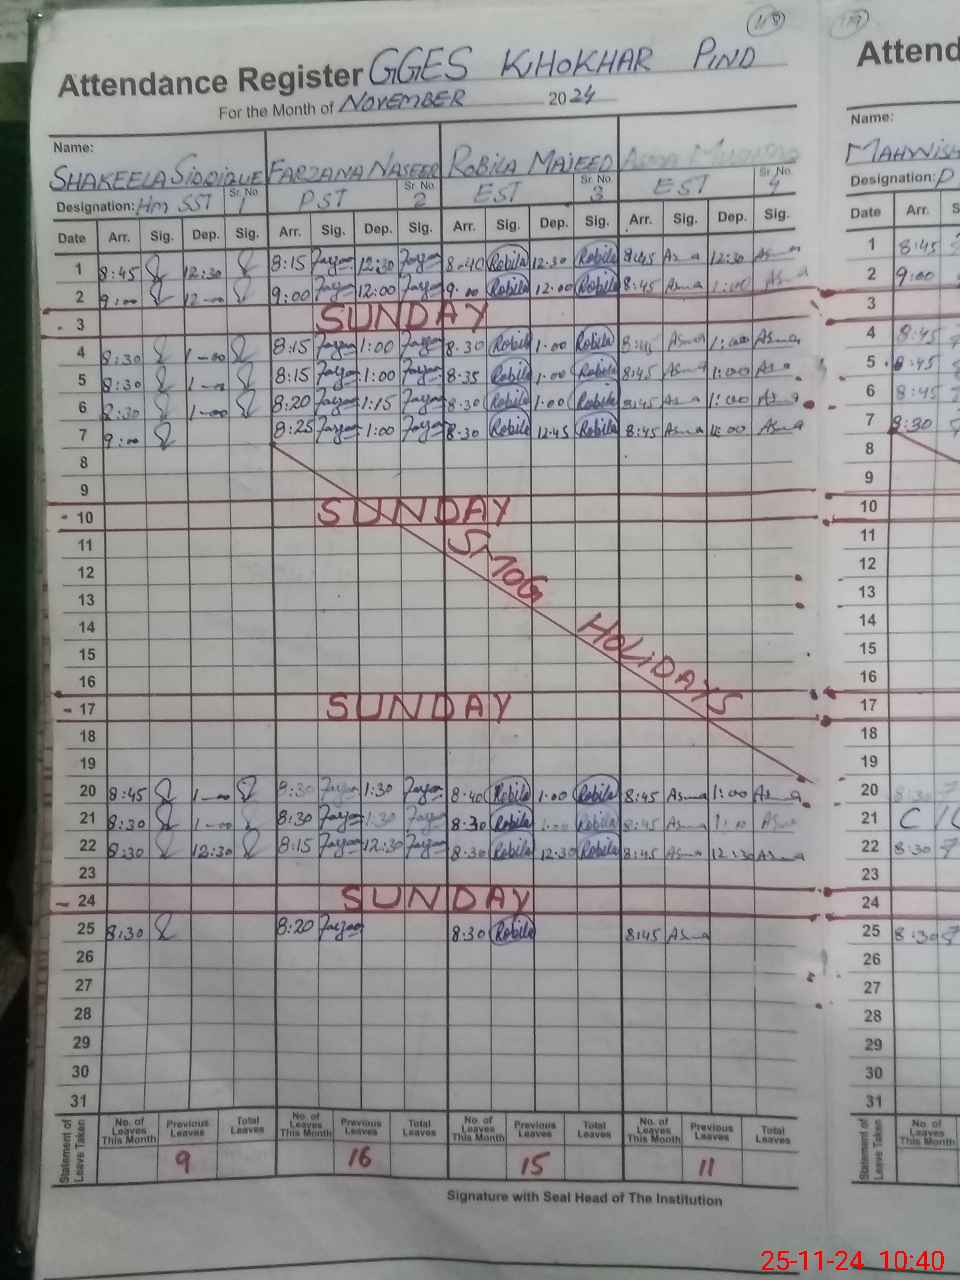 118 119
Attendance Register GGES KHOKHAR PIND Attend
For the Month of NOVEMBER 2024
Name: Name:
SHAKEELA SIDDIQUE FARZANA NASEER ROBILA MAJEED MAHWISH
Designation: Hm SST Sr. No. 1 PST Sr. No. 2 EST Sr. No. 3 EST Sr. No. 4 Designation: P
Date Arr. Sig. Dep. Sig. Arr. Sig. Dep. Sig. Arr. Sig. Dep. Sig. Arr. Sig. Dep. Sig. Date Arr. S
1 8:45 12:30 8:15 12:30 8-40 Robila 12.30 Robila 8:45 Asma 12:30 Asma 1 8:45
2 9:00 12-00 9:00 12:00 9.00 Robila 12.00 Robila 8:45 Asma 1:00 Asma 2 9:00
3 SUNDAY 3
4 8:30 1-00 8:15 1:00 8.30 Robila 1.00 Robila 8:45 Asma 1:00 Asma 4 8:45
5 8:30 1-00 8:15 1:00 8.35 Robila 1.00 Robila 8:45 Asma 1:00 Asma 5 8:45
6 8:30 1-00 8:20 1:15 8.30 Robila 1.00 Robila 8:45 Asma 1:00 Asma 6 8:45
7 9:00 8:25 1:00 8.30 Robila 12.45 Robila 8:45 Asma 1:00 Asma 7 8:30
8 8
9 9
10 SUNDAY 10
11 SMOG HOLIDAYS 11
12 12
13 13
14 14
15 15
16 16
17 SUNDAY 17
18 18
19 19
20 8:45 1-00 8:30 1:30 8.40 Robila 1.00 Robila 8:45 Asma 1:00 Asma 20 8:30
21 8:30 1-00 8:30 1:30 8.30 Robila 1:00 Robila 8:45 Asma 1:00 Asma 21 C/
22 8:30 12:30 8:15 12:30 8.30 Robila 12.30 Robila 8:45 Asma 12:30 Asma 22 8:30
23 23
24 SUNDAY 24
25 8:30 8:20 8.30 Robila 8:45 Asma 25 8:30
26 26
27 27
28 28
29 29
30 30
31 31
Statement of Leave Taken No. of Leaves This Month Previous Leaves Total Leaves No. of Leaves This Month Previous Leaves Total Leaves No. of Leaves This Month Previous Leaves Total Leaves No. of Leaves This Month Previous Leaves Total Leaves Statement of Leave Taken No. of Leaves This Month
9 16 15 11
Signature with Seal Head of The Institution
25-11-24 10:40